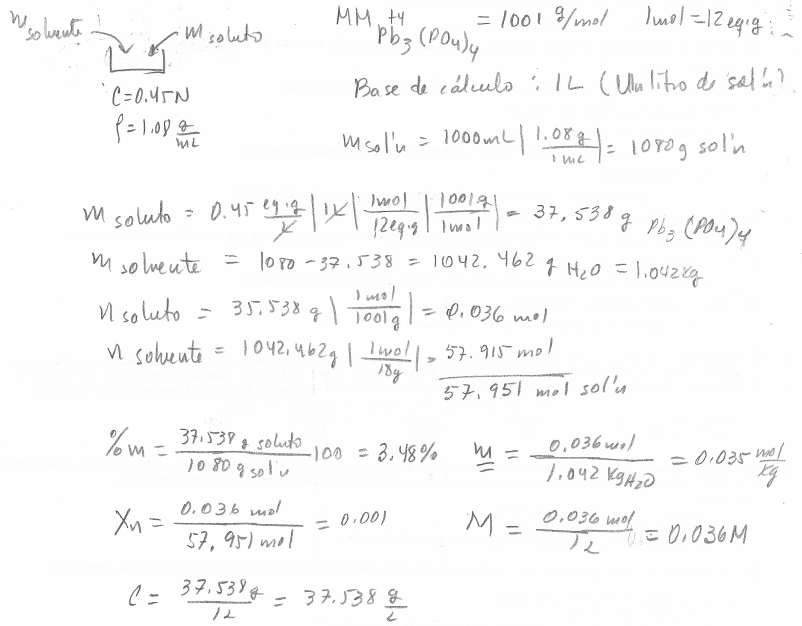 m solvente m soluto
C=0.45N
ρ=1.08 g/mL
MM Pb₃⁺⁴(PO₄)₄ = 1001 g/mol 1mol=12 eq·g
Base de cálculo : 1L (Un litro de sol'n)
m sol'n = 1000mL | 1.08g/1mL | = 1080g sol'n
m soluto = 0.45 eq·g/L | 1L | 1mol/12eq·g | 1001g/1mol | = 37,538 g Pb₃(PO₄)₄
m solvente = 1080-37.538 = 1042.462 g H₂O = 1.042Kg
n soluto = 35.538 g | 1mol/1001g | = 0.036 mol
n solvente = 1042,462g | 1mol/18g | = 57.915 mol
57.951 mol sol'n
%m = 37.538 g soluto/1080g sol'n 100 = 3.48%
m = 0.036mol/1.042 KgH₂O = 0.035 mol/Kg
Xn = 0.036 mol/57.951 mol = 0.001
M = 0.036 mol/1L = 0.036M
C = 37.538g/1L = 37.538 g/L